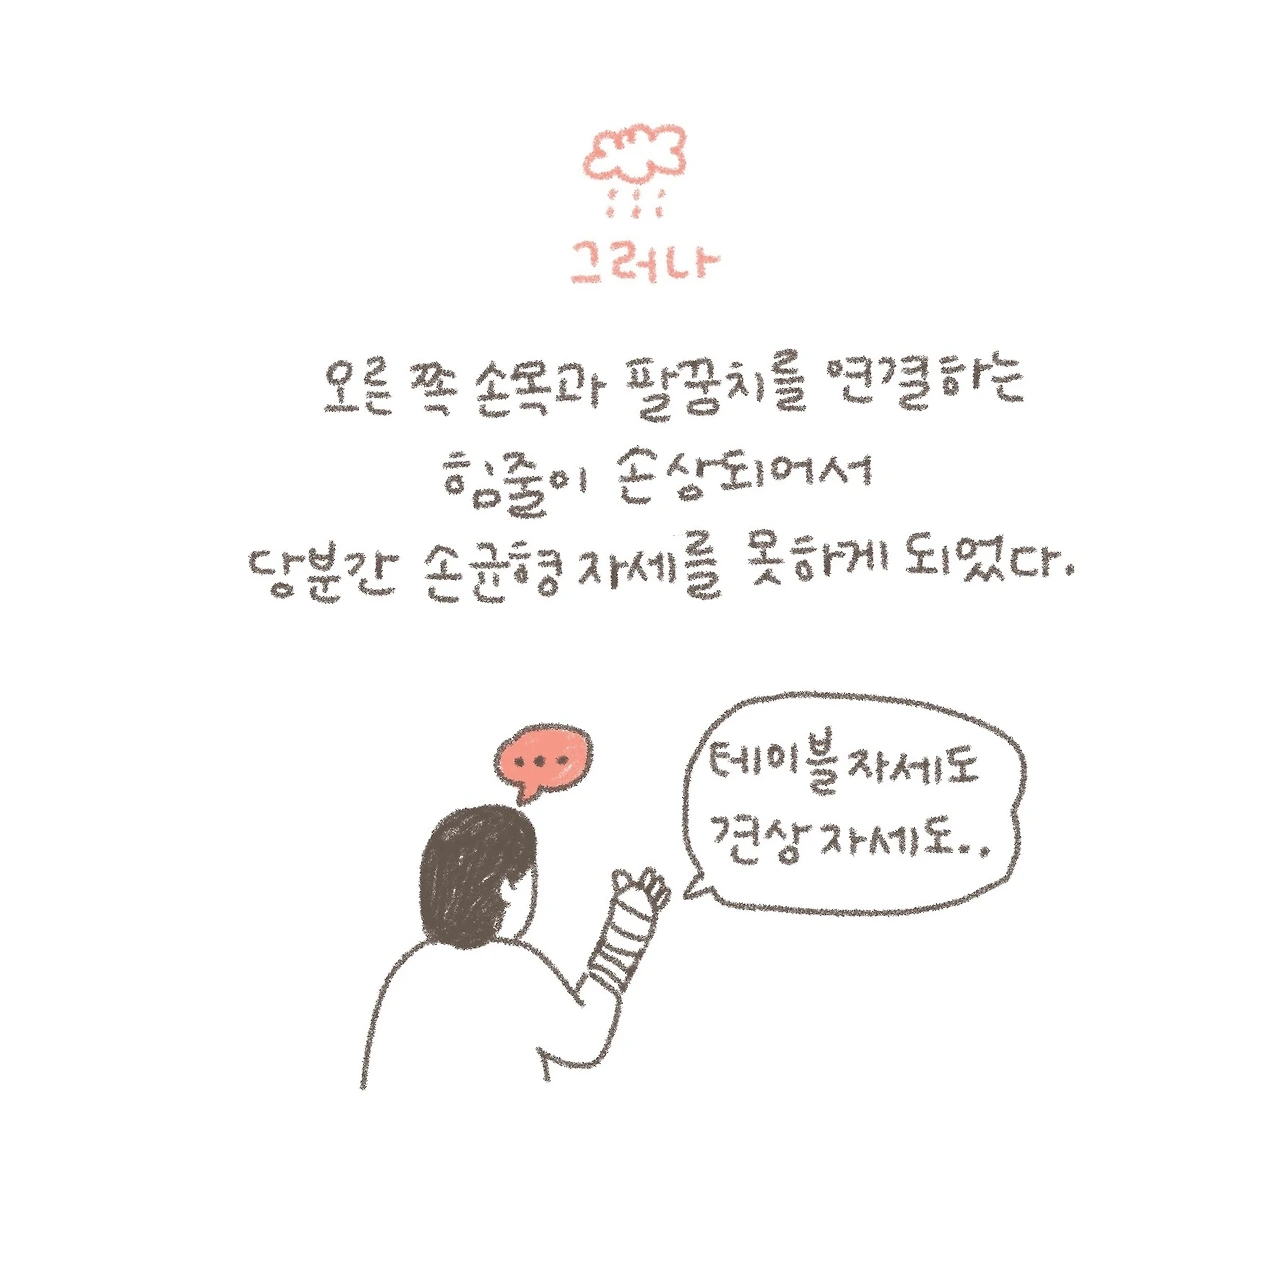 그러나
오른 쪽 손목과 팔꿈치를 연결하는
힘줄이 손상되어서
당분간 손균형 자세를 못하게 되었다.
테이블 자세도
견상 자세도..